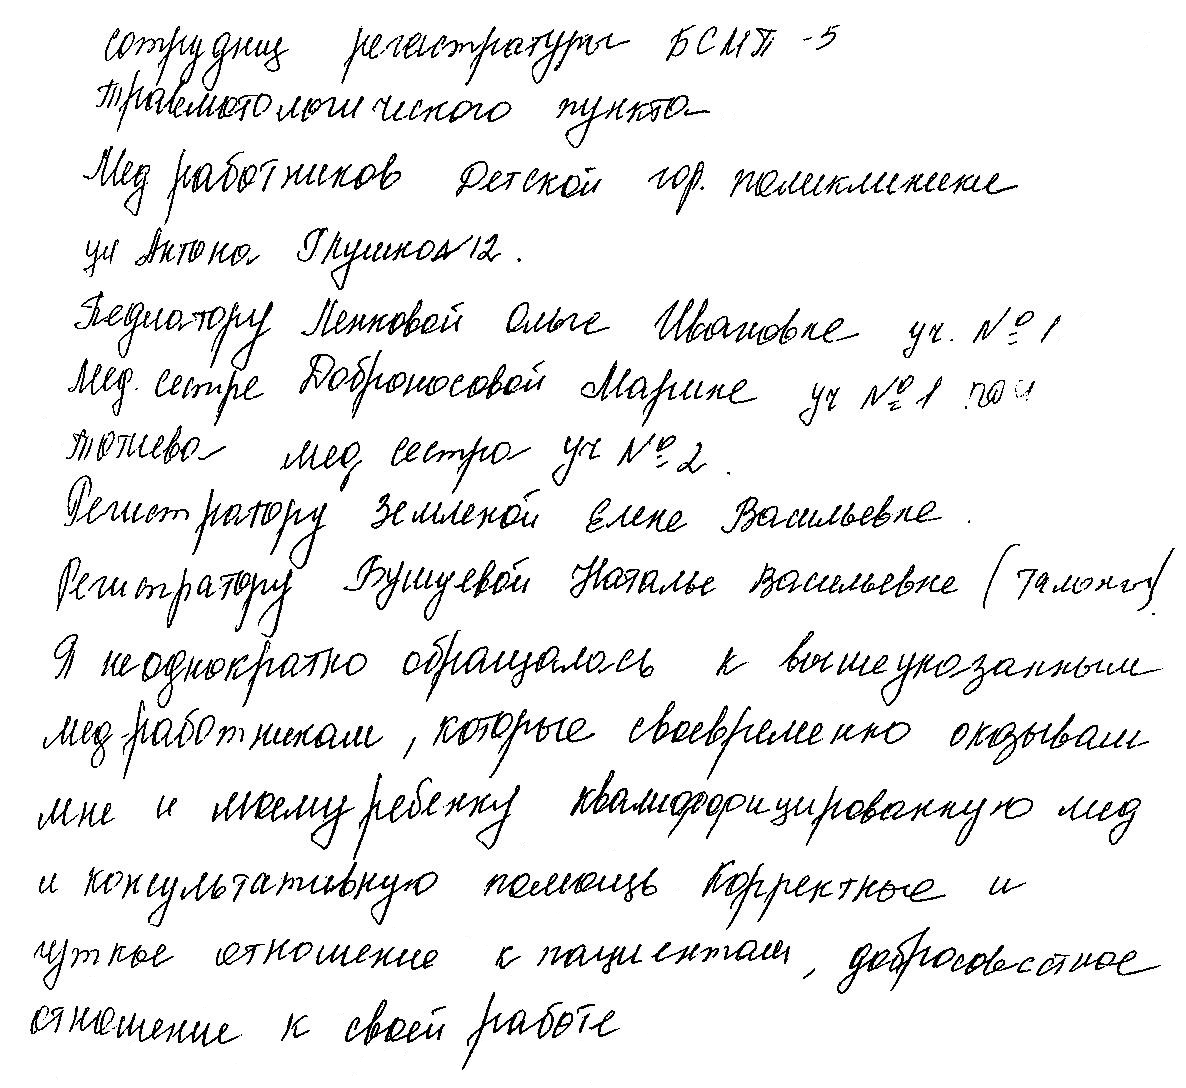 сотрудниц регастратуры БСМП-5
травмотологического пункта
Мед работников Детской гор. поликлиники
ул Антона Глушко 12.
Педиатору Ленковой Ольге Ивановне уч. №1
Мед. сестре Доброносовой Марине уч №1
мед сестра уч №2.
Регистратору Земленой Елене Васильевне.
Регистратору Бушуевой Наталье Васильевне (талоны)
Я неоднократно обращалась к вышеуказанным
мед-работникам, которые своевременно оказывали
мне и моему ребенку квалифицированную мед
и консультативную помощь Корректные и
чуткое отношение к пациентам, добросовестное
отношение к своей работе